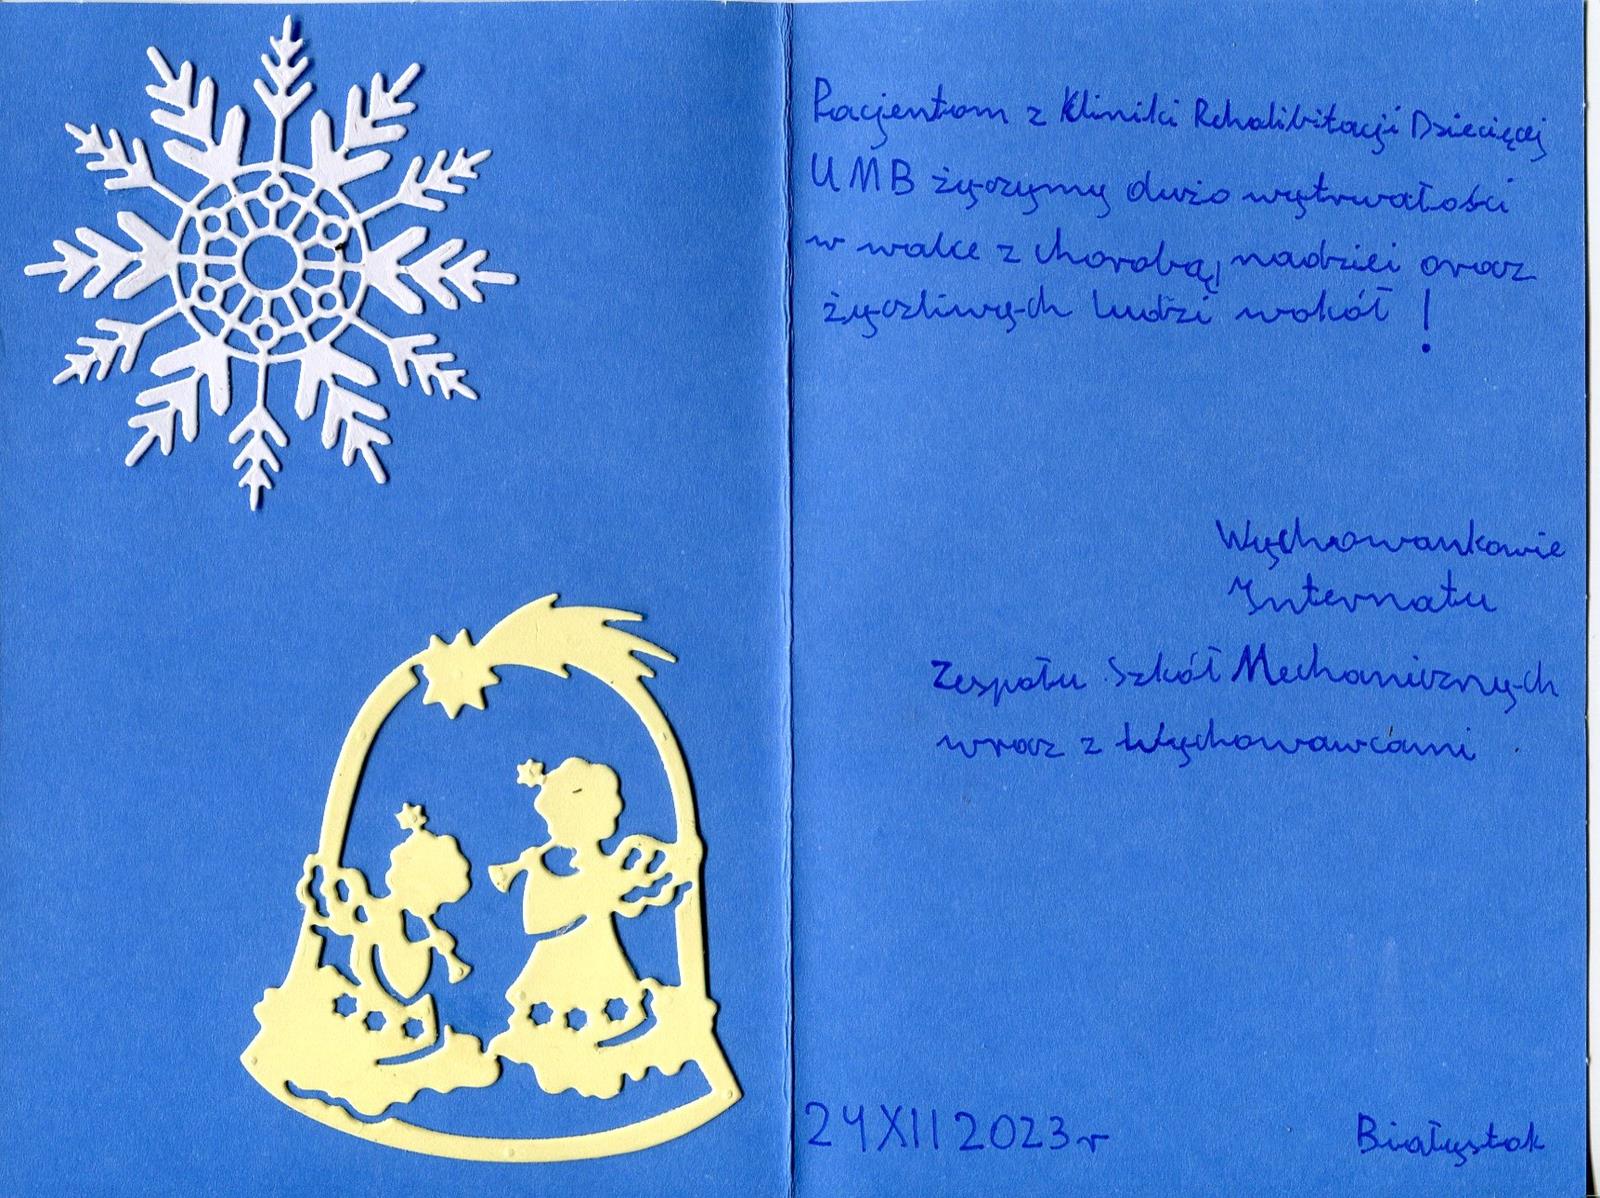 Pacjentom z Kliniki Rehalibitacji Dziecięcej
UMB życzymy dużo wytrwałości
w walce z chorobą, nadziei oraz
życzliwych ludzi wokół !
Wychrowankowie
Internatu
Zespołu Szkół Mechanicznych
wraz z Wychowawcami
24 XII 2023 r
Białystok